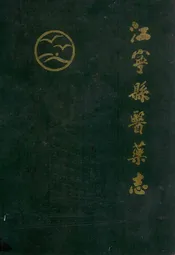 江寧縣醫藥志